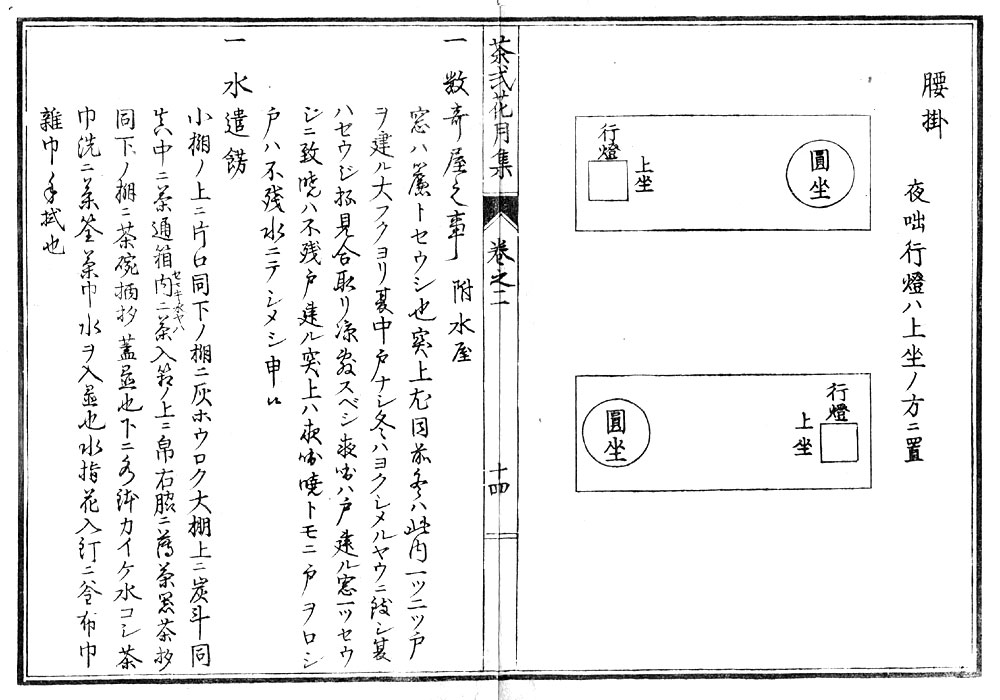 腰掛
夜咄行燈ハ上坐ノ方ニ置
圓坐
上坐
行燈
行燈
上坐
圓坐
茶式花月集
巻之二
十四
一 数奇屋之事 附水屋
窓ハ簾トセウシ也突上尤同前冬ハ此内一ツ二ツ戸
ヲ建ル大フクヨリ夏中戸ナシ冬ハヨクシメルヤウニ致シ夏
ハセウジ抔見合取リ凉敷スベシ夜咄ハ戸建ル窓一ツセウ
ジニ致暁ハ不残戸建ル突上ハ夜咄暁トモニ戸ヲロシ
戸ハ不残水ニテシメシ申候
一 水遣餝
小棚ノ上ニ片口同下ノ棚ニ灰ホウロク大棚上ニ炭斗同
真中ニ茶通箱内ニ茶入箱ノ上ニ帛右脇ニ薄茶器茶杓
同下ノ棚ニ茶碗柄杓蓋置也下ニ水鉢カイケ水コシ茶
巾洗ニ茶筌茶巾水ヲ入置也水指花入釘ニ釜布巾
雑巾手拭也